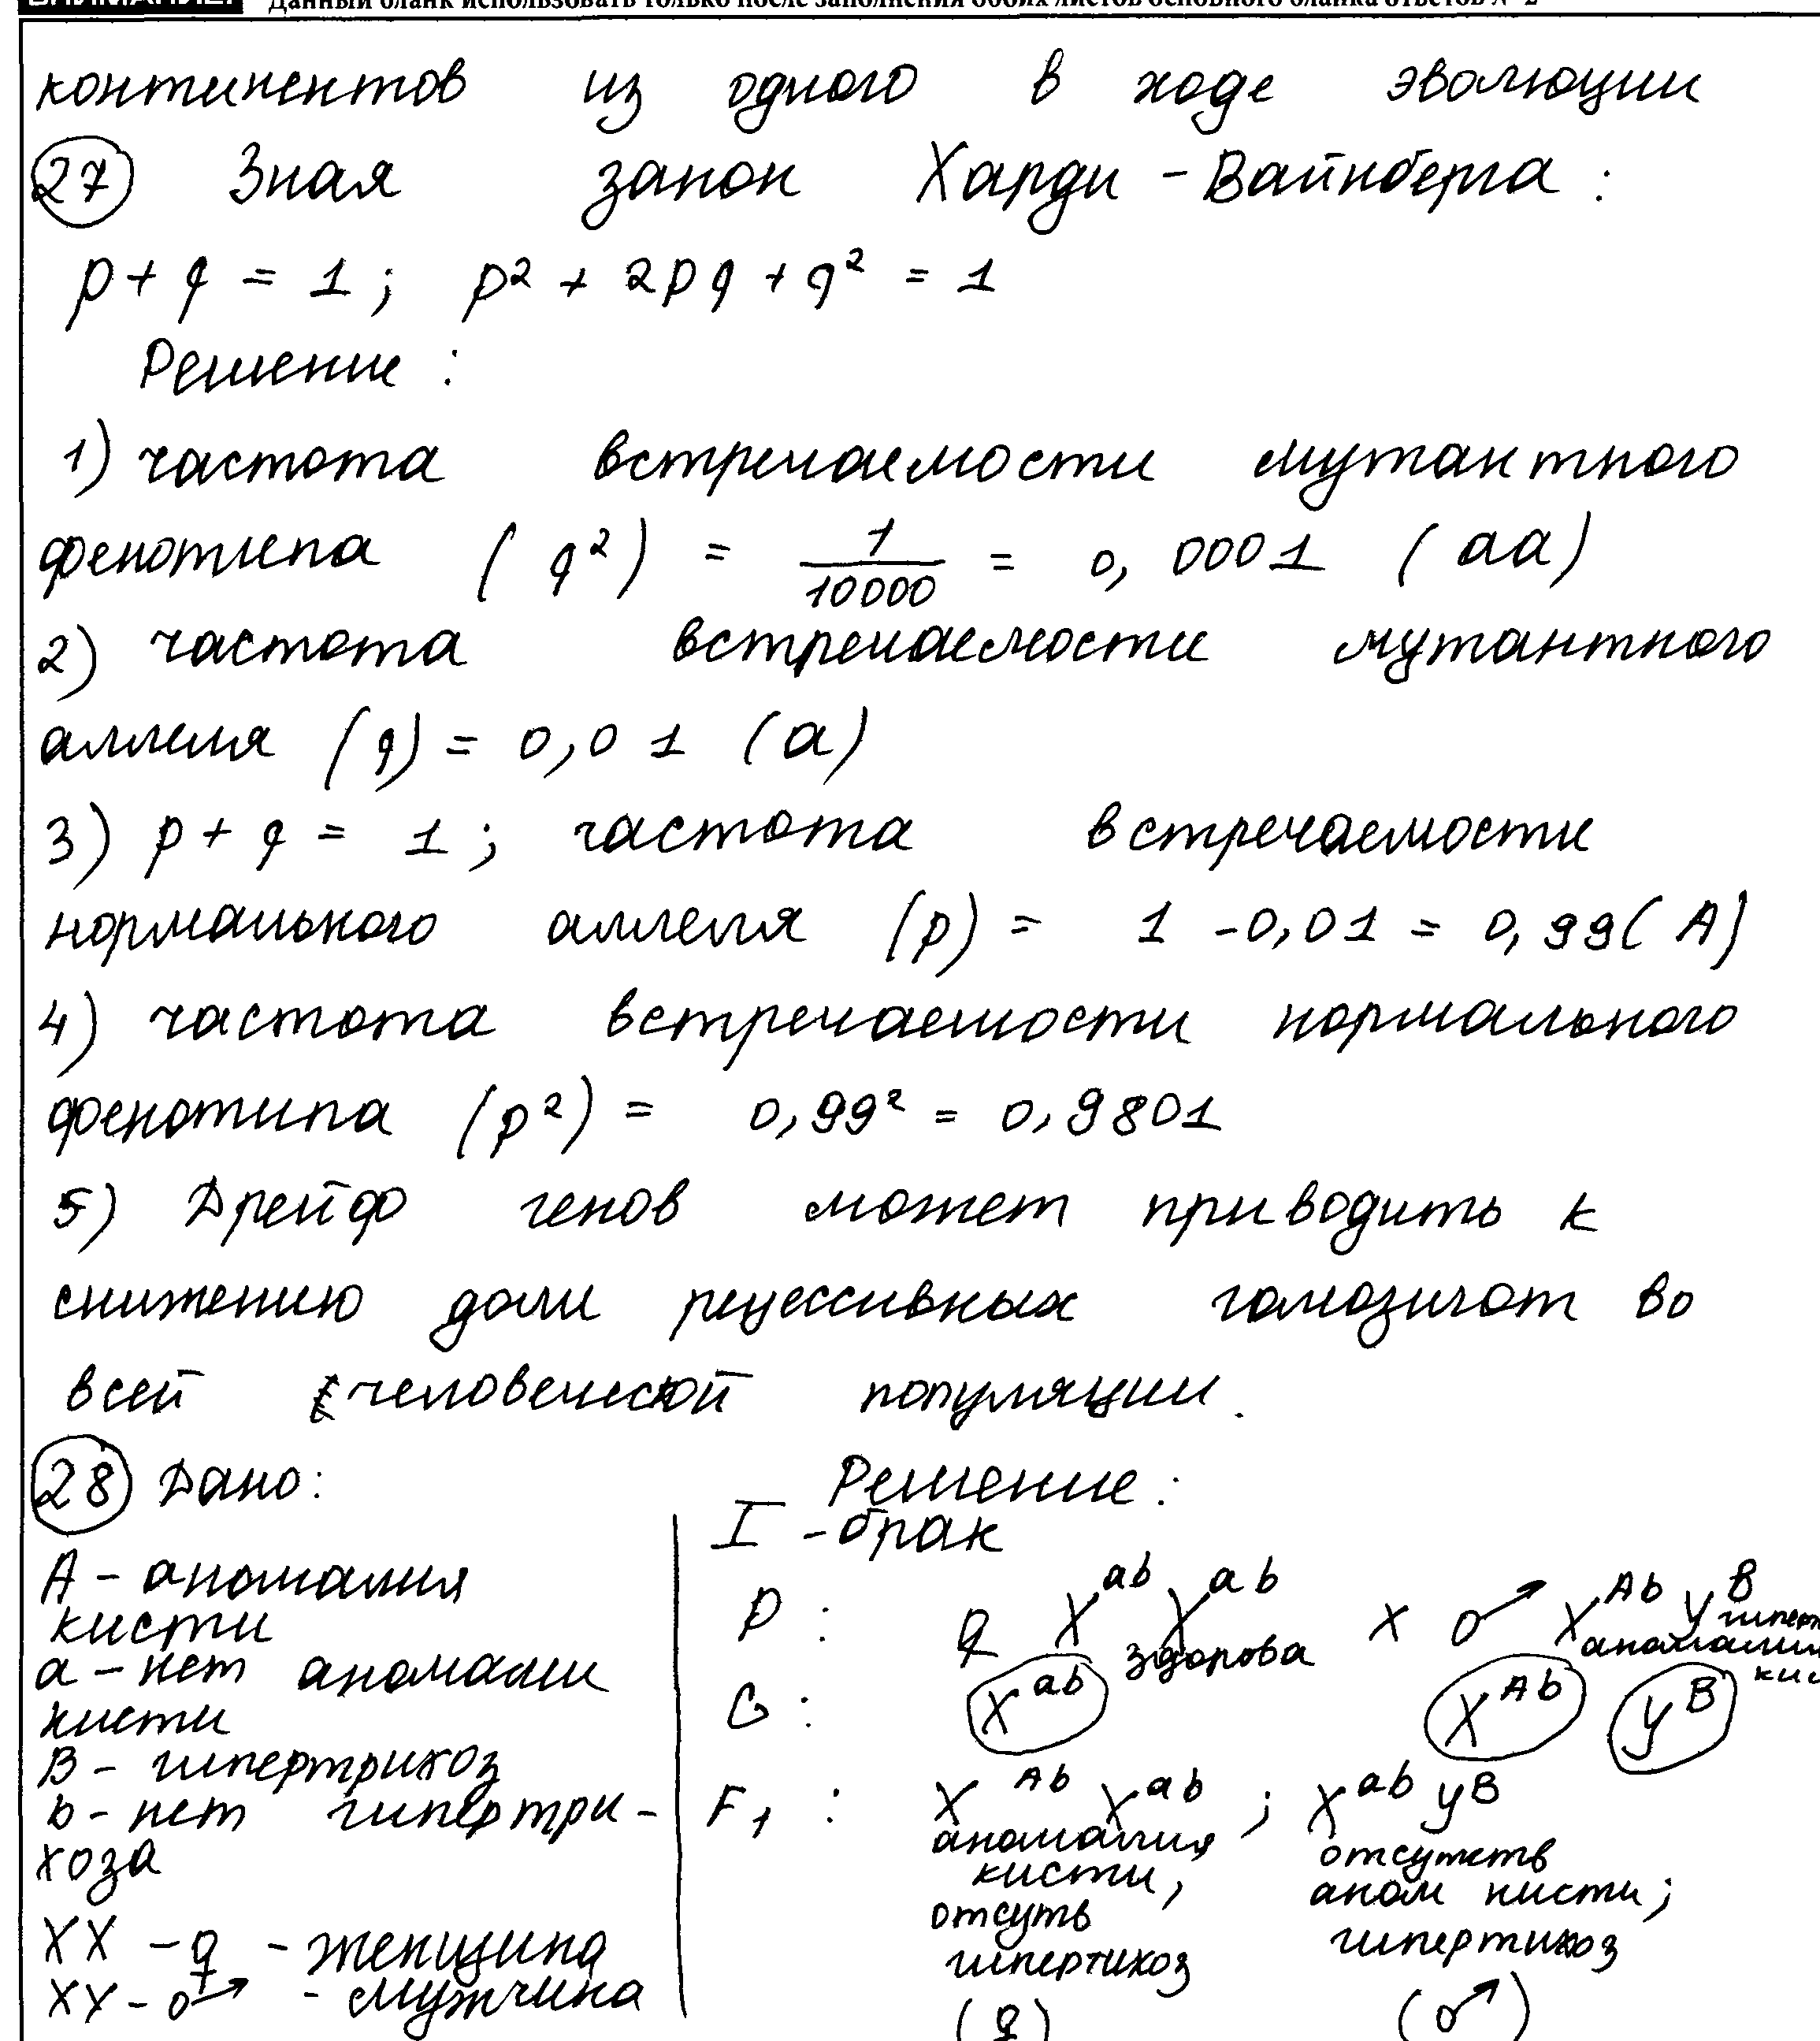 Данный бланк использовать только после заполнения обоих листов основного бланка ответов № 2
континентов из одного в ходе эволюции
27 Зная закон Харди - Вайнберга :
p + q = 1 ; p² + 2pq + q² = 1
Решение :
1) частота встречаемости мутантного
фенотипа ( q² ) = 1/10000 = 0, 0001 ( aa )
2) частота встречаемости мутантного
аллеля (q) = 0,01 (a)
3) p + q = 1 ; частота встречаемости
нормального аллеля (p) = 1 - 0,01 = 0,99 ( A )
4) частота встречаемости нормального
фенотипа (p²) = 0,99² = 0,9801
5) Дрейф генов может приводить к
снижению доли рецессивных гомозигот во
всей человеческой популяции.
28 Дано:
А - аномалия
кисти
а - нет аномали
кисти
В - гипертрихоз
b - нет гипертри-
хоза
XX - ♀ - женщина
XY - ♂ - мужчина
Решение :
I - брак
P : ♀ X^ab X^ab x ♂ X^Ab Y^B
здорова
гиперт
аномалия
кис
G : X^ab X^Ab Y^B
F₁ : X^Ab X^ab ; X^ab Y^B
аномалия отсутств
кисти, аном кисти;
отсуть гипертихоз
гипертихоз
(♀) (♂)